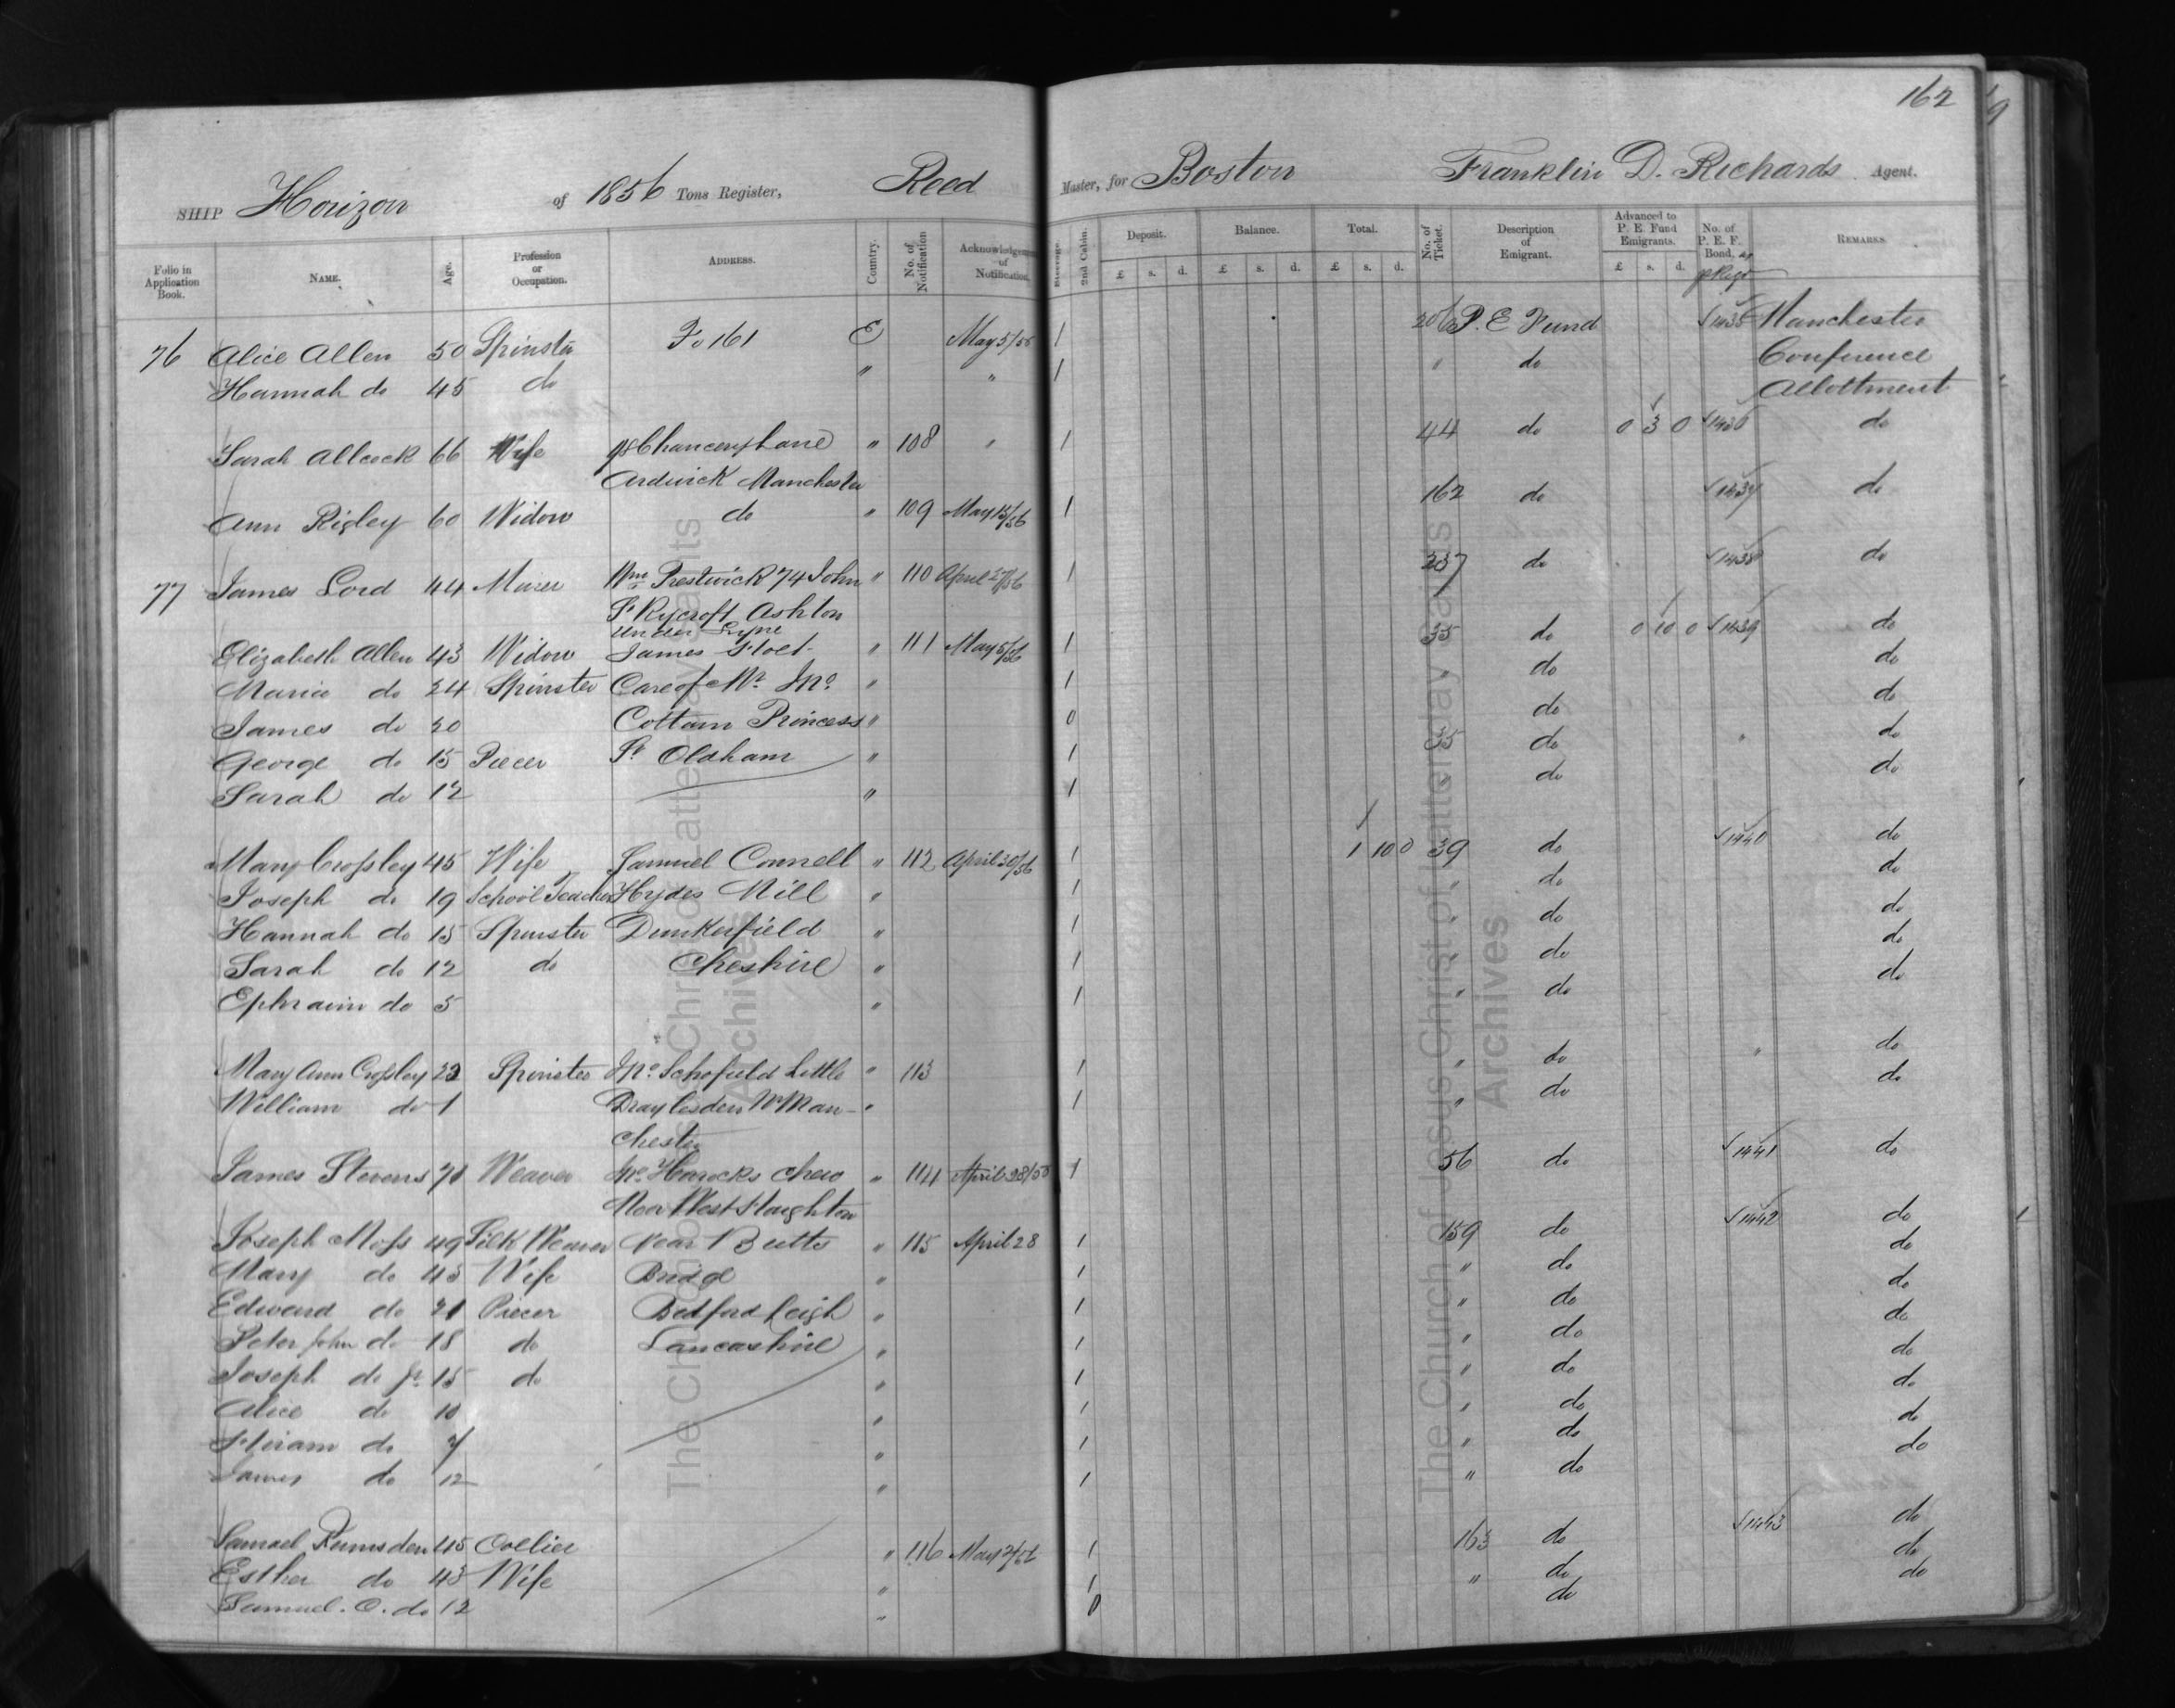 162
SHIP Horizon of 1856 Tons Register, Reed Master, for Boston Franklin D. Richards Agent.
Folio in Application Book. NAME. Age. Profession or Occupation. ADDRESS. Country. No. of Notification Acknowledgement of Notification. Steerage. 2nd Cabin. Deposit. £ s. d. Balance. £ s. d. Total. £ s. d. No. of Ticket. Description of Emigrant. Advanced to P. E. Fund Emigrants. £ s. d. No. of P. E. F. Bond. REMARKS.
76 Alice Allen 50 Spinster Fo 161 E May 5/56 1 206 P. E Fund 1435 Manchester
Hannah do 45 do " " 1 " do Conference
Allottment
Sarah Allcock 66 Wife Chancery Lane " 108 " 1 44 do 0 3 0 1436 do
Ardwick Manchester
Ann Rigley 60 Widow do " 109 May 15/56 1 162 do 1437 do
77 James Lord 44 Miner Wm Prestwick 74 John " 110 April 27/56 1 237 do 1438 do
St Rycroft Ashton
under Lyne
Elizabeth Allen 43 Widow James " 111 May 5/56 1 35 do 0 10 0 1439 do
Maria do 24 Spinster Care of Mr Jno. " 1 " do do
James do 20 Cottam Princess " 0 do do
George do 15 Piecer St Oldham " 1 35 do " do
Sarah do 12 " 1 " do do
Mary Crossley 45 Wife Samuel Connell " 112 April 30/56 1 1 10 0 39 do 1440 do
Joseph do 19 School Teacher Hydes Mill " 1 " do do
Hannah do 15 Spinster Dunkerfield " 1 " do do
Sarah do 12 do Cheshire " 1 " do do
Ephraim do 5 " 1 " do do
Mary Ann Crossley 22 Spinster Jno. Schofield Little " 113 1 " do " do
William do 1 Draylesden Nr Man- " 1 " do do
chester
James Stevens 71 Weaver Jno. Horrocks Chew " 114 April 28/56 1 56 do 1441 do
Moor West Haughton
Joseph Moss 49 Silk Weaver Near Butts " 115 April 28 1 159 do 1442 do
Mary do 45 Wife Bridge " 1 " do do
Edward do 21 Piecer Bedford Leigh " 1 " do do
Peter John do 18 do Lancashire " 1 " do do
Joseph do Jr. 15 do " 1 " do do
Alice do 10 " 1 " do do
Hiram do 7 " 1 " do do
James do 12 " 1 " do do
Samuel Rumsden 45 Collier " 116 May 2/56 1 163 do 1443 do
Esther do 43 Wife " 1 " do do
Samuel. O. do 12 " 0 do do
The Church of Jesus Christ of Latter-day Saints
Archives
The Church of Jesus Christ of Latter-day Saints
Archives